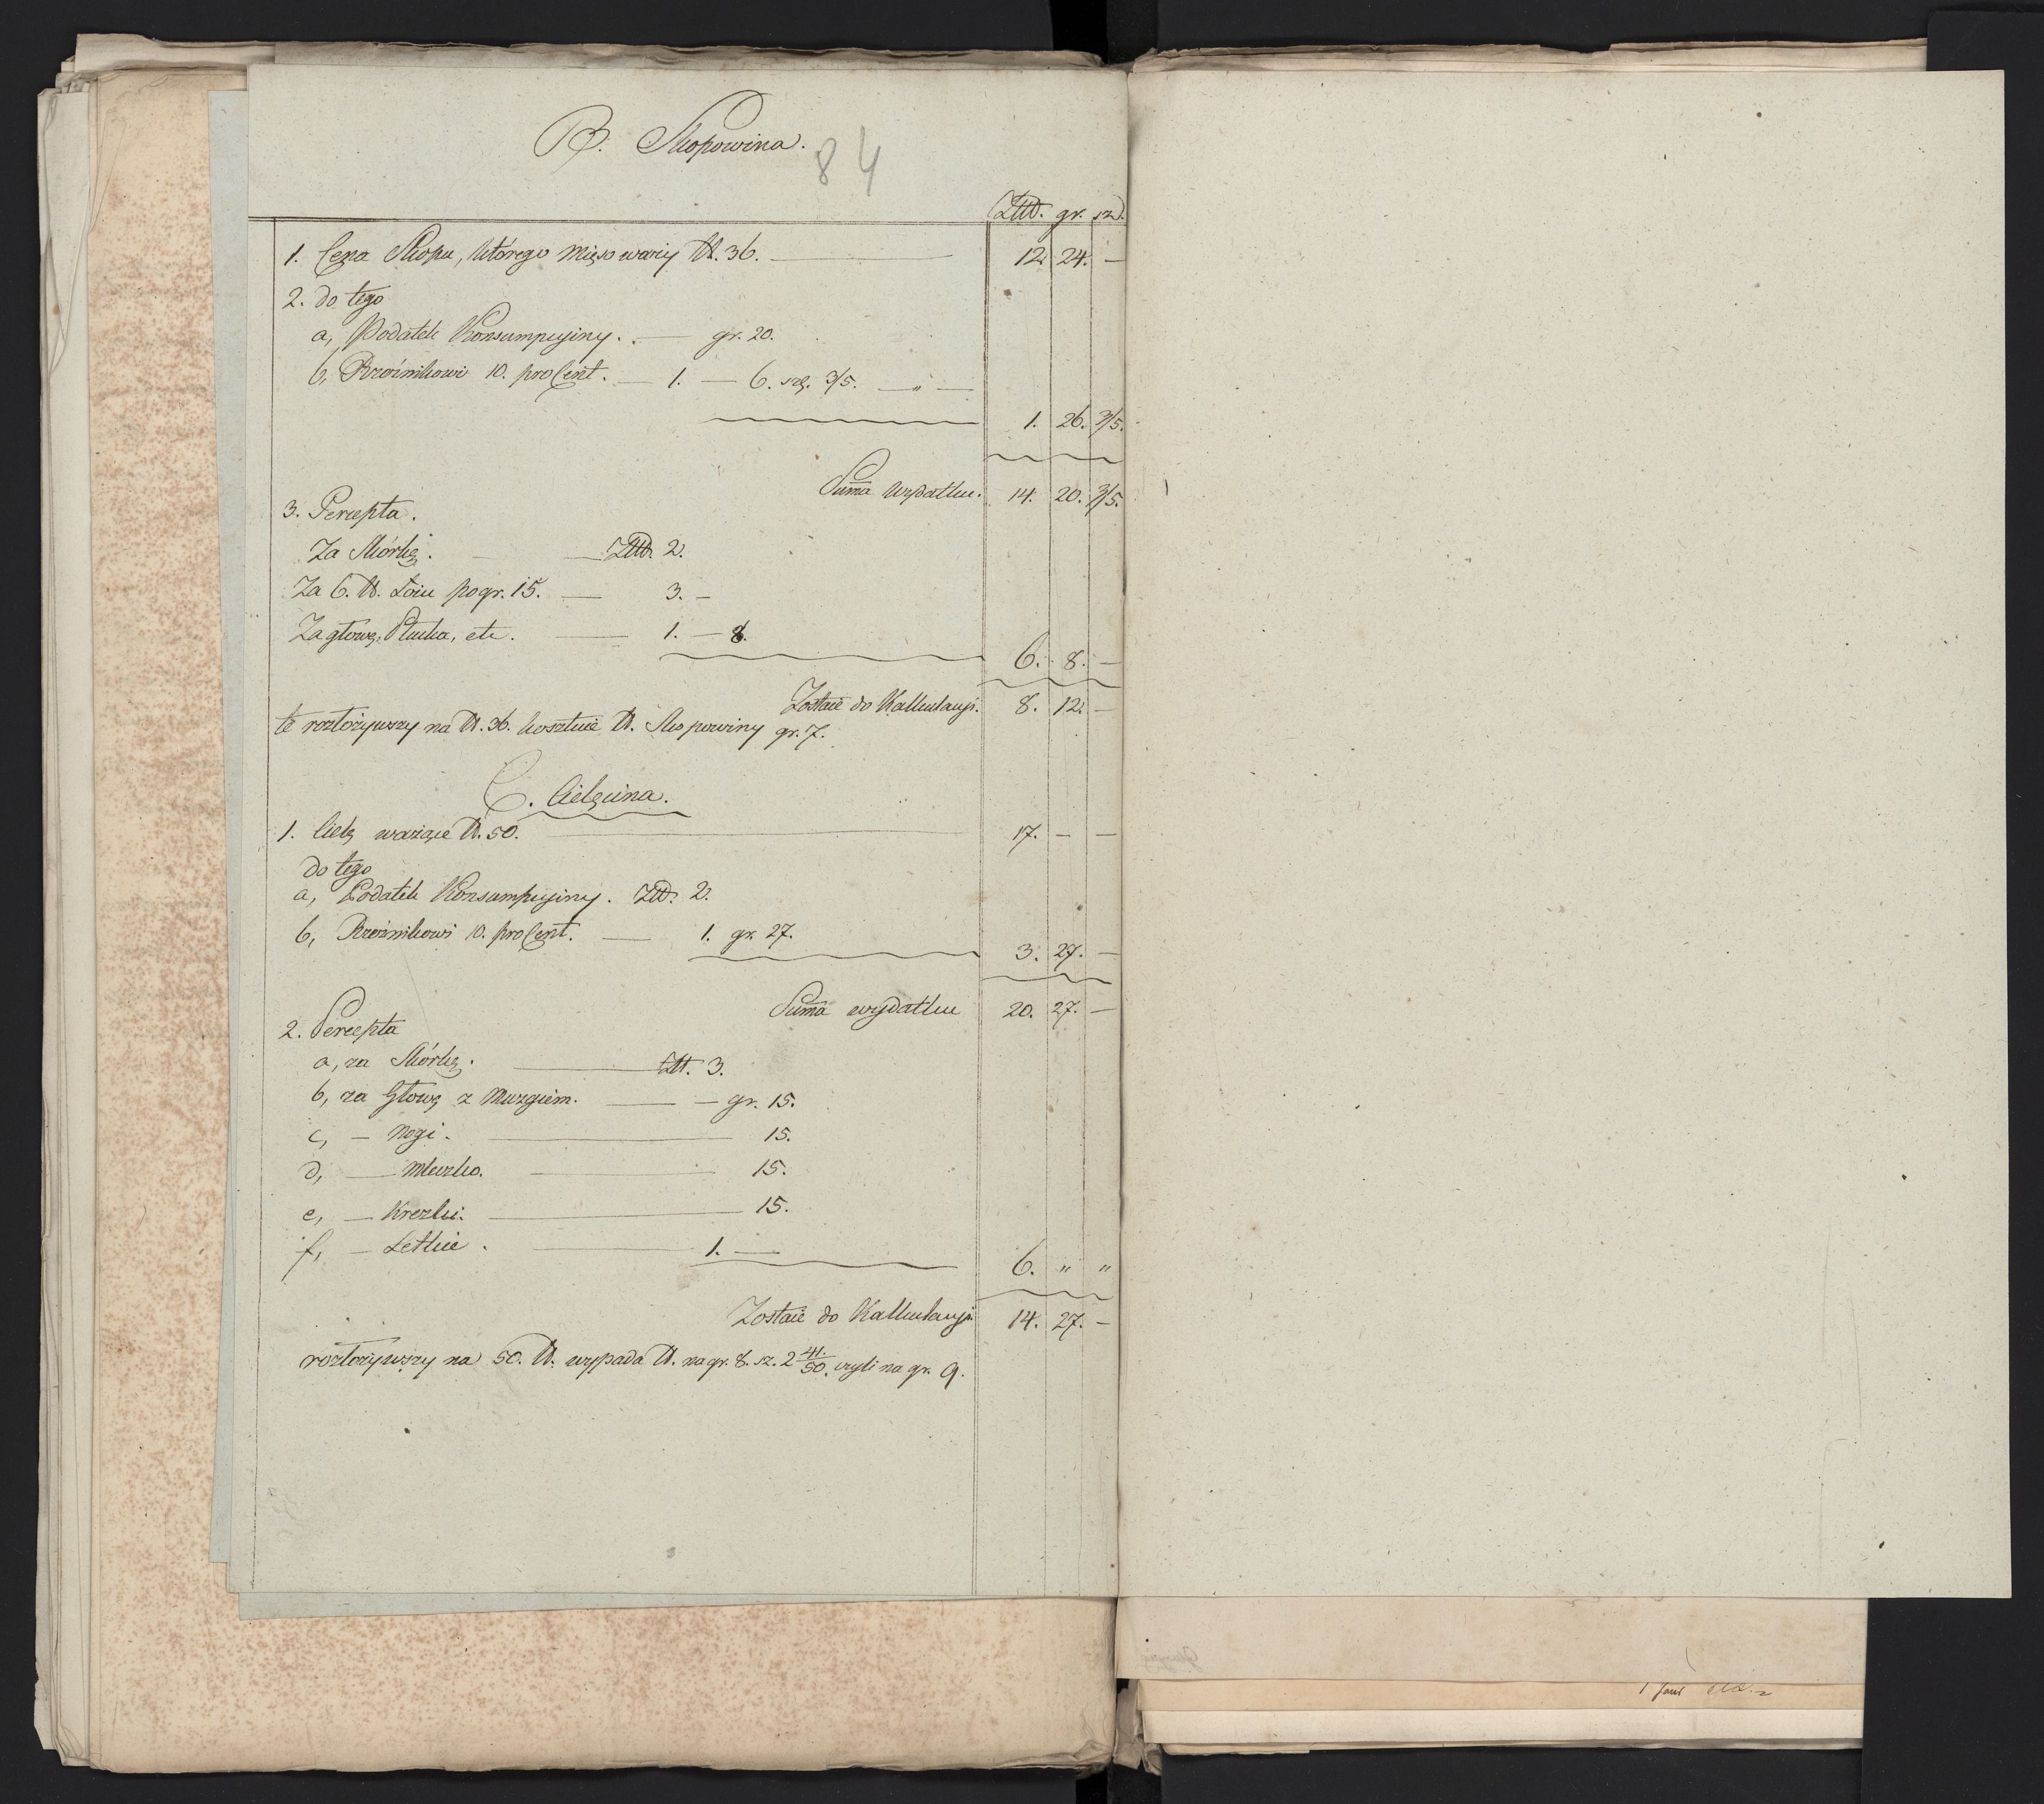 B. Skopowina.
84
Złłł. gr. sz.
1. Cena Skopu, którego mięso waży ℔. 36. 12. 24. —
2. do tego
a, Podatek Konsumpcyiny. — gr. 20.
b, Rzeźnikowi 10. proCent. — 1. — 6. szl. 3/5. — „ —
1. 26. 3/5.
Suma₃ wydatku. 14. 20. 3/5.
3. Percepta.
Za Skórkę. — Złł. 2.
Za 6. ℔. Łoiu po gr. 15. — 3. —
Za głowę, Płucka, etc. — 1. — 8.
6. 8. —
Zostaie do Kalkulacyi. 8. 12. —
te rozłożywszy na ℔. 36. kosztuie ℔. Skopowiny gr. 7.
C. Cielęcina.
1. Cielę ważące ℔. 50. — 17. — —
do tego
a, Podatek Konsumpcyiny. Złł. 2.
b, Rzeźnikowi 10. proCent. — 1. gr. 27.
3. 27. —
Suma wydatku 20. 27. —
2. Percepta
a, za Skórkę. — Zł. 3.
b, za Głowę z Muzgiem. — — gr. 15.
c, — Nogi. — 15.
d, — Mleczko. — 15.
e, — Krezki. — 15.
f, — Letkie. — 1. —
6. „ „
Zostaie do Kalkulacyi. 14. 27. —
rozłożywszy na 50. ℔. wypada ℔. na gr. 8. sz. 2 41/50. czyli na gr. 9.